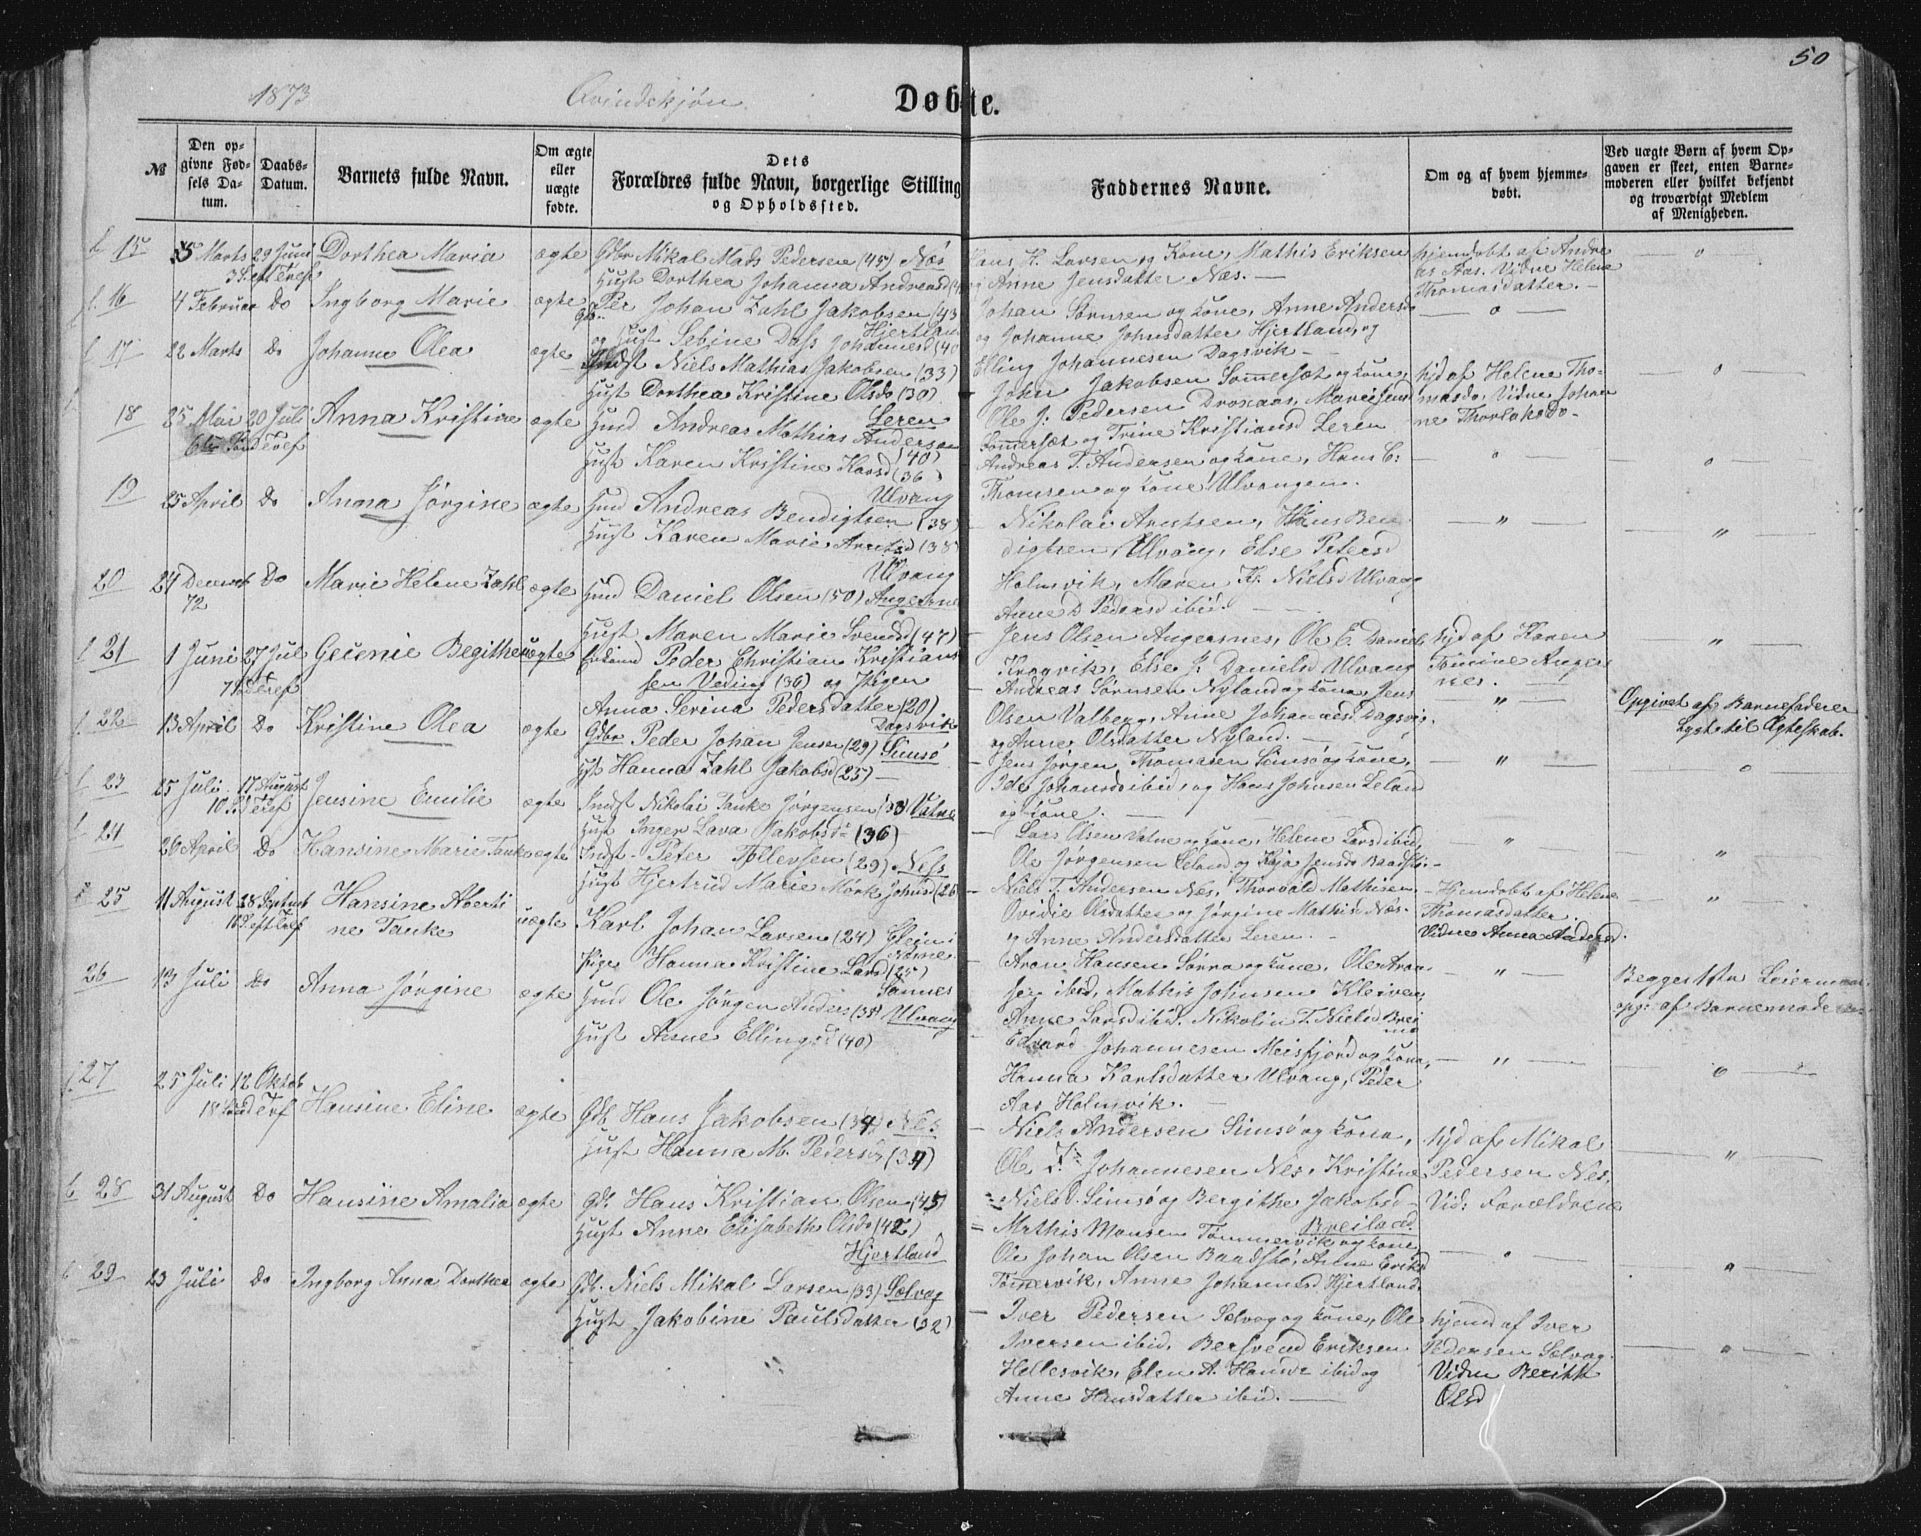 50
1873 Qvindekjøn Døbte.
№
Den opgivne Fødsels Datum.
Daabs-Datum.
Barnets fulde Navn.
Om ægte eller uægte fødte.
Dets Forældres fulde Navn, borgerlige Stilling og Opholdssted.
Faddernes Navne.
Om og af hvem hjemmedøbt.
Ved uægte Børn af hvem Opgaven er skeet, enten Barnemoderen eller hvilket bekjendt og troværdigt Medlem af Menigheden.
15 5 Marts 29 Juni Dorthea Maria ægte Gdbr Mikal Mads Pedersen (45) Næs
Hust Dorthea Johanna Andreasd
Hans H. Larsen og Kone, Mathis Eriksen
Anne Jensdatter Næs. —
hjemdøbt af Andreas Aas. Vidne Helene
Thomasdatter. —
16 4 Februar Do Ingborg Marie ægte Per Johan Zahl Jakobsen (43
og Hust Sebine Dass Johannesd (40
Hjertland
Johan Sørnsen og Kone, Anne Andersd
og Johanne Johnsdatter Hjertland, og
Elling Johannesen Dagsvik —
17 22 Marts Do Johanne Olea ægte Indst Niels Mathias Jakobsen (33)
Hust Dorthea Kristine Olsd (30)
Leren
John Jakobsen Sommersæt og Kone,
Ole J: Pedersen Dronaas, Marie Jensd
Sommersæt og Trine Kristiansd Leren
hjd af Helene Thomasd, Vidne Johanne Thorlaksd —
18 25 Mai 20 Juli Anna Kristine ægte Husmd Andreas Mathias Andersen (40)
Hust Karen Kristine Larsd (36)
Ulvang
Andreas T. Andersen og Kone, Hans E:
Thomsen og Kone, Ulvangen.
19 25 April Do Anna Jørgine ægte Husmd Andreas Bendigtsen (38)
Hust Karen Marie Arntsd (38)
Ulvang
Nikolai Arntsen, Hans Bendigtsen, Ulvang, Else Petersd
Holmvik, Maren K. Nielsd Ulvang
Anne D Pedersd ibid. —
20 24 Decembr 72 Do Marie Helene Zahl ægte Husmd Daniel Olsen (50) Angersnes
Hust Maren Marie Svendsd (47)
Jens Olsen Angersnes, Ole E. Daniels
Krogvik, Else J. Danielsd Ulvang
hjd af Karen
Tomine Angersnes. —
21 1 Juni 27 Jul Gecenie Begithe uægte Peder Christian Kristiansen Veding (36) og Pigen
Anna Serina Pedersdatter (20)
Dagsvik
Andreas Sørnsen Nyland og Kone, Jens
Olsen Valberg, Anne Johannesd Dagsvig,
og Anne Olsdatter Nyland. —
Opgivet af Barnefaderen
Lyst til Ægteskab.
22 13 April Do Kristine Olea ægte Gdbr Peder Johan Jensen (29) Simsø
Hst Hanna Zahl Jakobsd (25) —
Jens Jørgen Thomasen Simsø og Kone,
Ide Johansd ibid, og Hans Johnsen Leland
og Kone. —
23 25 Juli 17 August Jensine Emilie ægte Indst Nikolai Tanke Jørgensen (38) Valne
Hust Inger Lava Jakobsd (36)
Lars Olsen Valne og Kone, Helene Larsd ibid,
Ole Jørgensen Leland, og Kaja Jensd Baadstø. —
24 26 April Do Hansine Marie Tanke ægte Indst Peter Tollevsen (29) Ness
Hust Hjertrud Marie Mørk Johnsd (26
Niels T. Andersen Nes, Thorvald Mathisen
Ovidie Olsdatter og Jørgine Mathisd Næs.
og Anne Andersdatter Leren. —
Hjemdøbt af Helene
Thomasdatter.
Vidne Anna Andersd.
25 11 August 28 Septemb Hansine Abertine Tanke uægte Karl Johan Larsen (24)
Pige Hanna Kristine Larsd (25)
Sannes
Aron Hansen Sørra og Kone, Ole Aronsen ibid, Mathis Johnsen Kleiven,
Anne Larsd ibid. Nikolin T. Nielsd
Begges 1ste Leiermaal
opg: af Barnemoderen
26 13 Juli Do Anna Jørgine ægte Husmd Ole Jørgen Anders (38) Ulvang
Hust Anne Ellingsd (40)
Edvard Johannesen Meisfjord og Kone,
Hanna Karlsdatter Ulvang, Peder
Aas Holmvik. —
27 25 Juli 12 Oktob Hansine Eline ægte Gdb Hans Jakobsen (34) Nes
Hust Hanna M. Pedersd (34)
Niels Andersen Simsø og Kone,
Ole J. Johannesen Nes, Kristine
Niels Simsø og Bergithe Jakobsd
Breiland
hjd af Mikal
Pedersen Nes,
Vid: Forældrene
28 31 August Do Hansine Amalia ægte Gdb. Hans Kristian Olsen (45)
Hust Anne Elisabeth Olsd (42)
Hjertland
Mathis Monsen Tømmervik og Kone,
Ole Johan Olsen Baadstø, Anne Eriksd
Tømervik, Anne Johannesd Hjertland.
29 23 Juli Do Ingborg Anna Dorthea ægte Gdb. Niels Mikal Larsen (33) Selvog
Hust Jakobine Paulsdatter (32)
Iver Pedersen Selvog og Kone, Ole
Iversen ibid, Bersvend Eriksen
Hellesvik, Elen A. Hansd ibid og
Anne Hansdatter ibid. —
hjemd af Iver
Pedersen Selvog
Viden Berith
Olsd